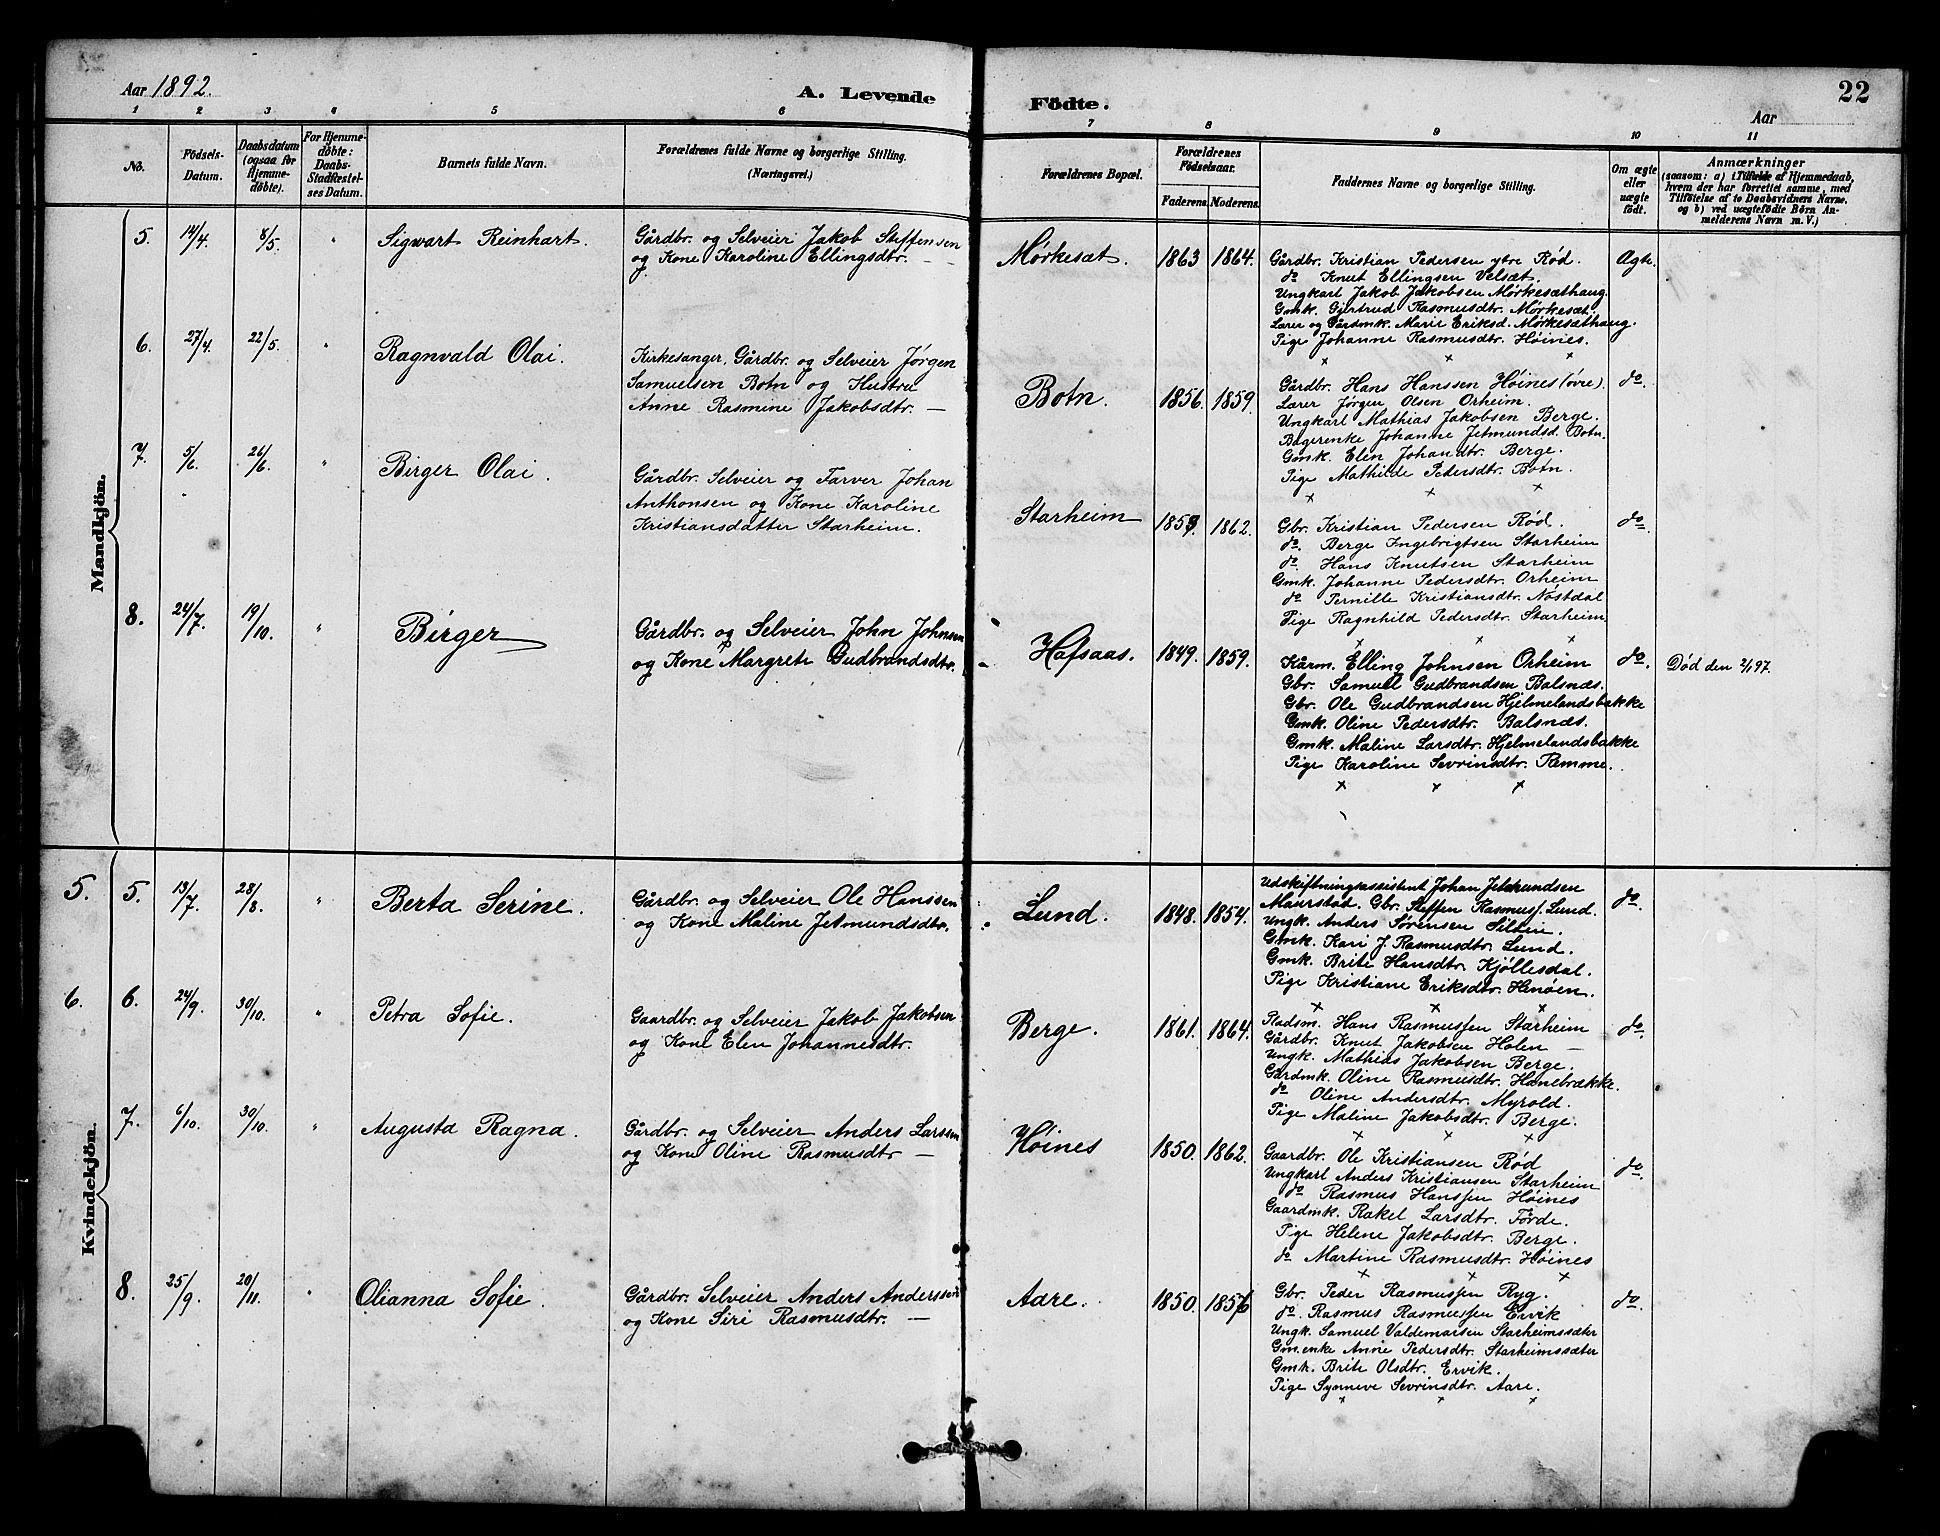 Aar 1892.
A. Levende
Födte.
22
Aar
1 2 3 4 5 6 7 8 9 10 11
No.
Födsels-Datum.
Daabsdatum (ogsaa for Hjemme-döbte).
For Hjemme-döbte: Daabs-Stadfæstel-ses Datum.
Barnets fulde Navn.
Forældrenes fulde Navne og borgerlige Stilling.
(Næringsvei.)
Forældrenes Bopæl.
Forældrenes Födselsaar.
Faderens. Moderens.
Faddernes Navne og borgerlige Stilling.
Om ægte eller uægte födt.
Anmærkninger
(saasom: a) i Tilfælde af Hjemmedaab,
hvem der har forrettet samme, med
Tilföielse af to Daabsvidners Navne,
og b) ved uægtefödte Börn An-
melderens Navn m. V.)
Mandkjön.
5. 14/4. 8/5. " Sigwart Reinhart. Gårdbr. og Selveier Jakob Steffensen
og Kone Karoline Ellingsdtr. — —
Mørkesæt. 1863 1864. Ægte.
Gårdbr. Kristian Pedersen ytre Rød.
do Knut Ellingsen Velsæt.
Ungkarl Jakob Jakobsen Mørkesæthaug.
Gmk. Gjertrud Rasmusdtr. Mørkesæt.
Lærer og Gårdmk. Marie Eriksd. Mørkesæthaug.
Pige Johanne Rasmusdtr. Høines.
x x x
6. 27/4. 22/5. " Ragnvald Olai. Kirkesanger, Gårdbr. og Selveier Jørgen
Samuelsen Botn og Hustru
Anne Rasmine Jakobsdtr. —
Botn. 1856. 1859. do.
Gårdbr. Hans Hanssen Høines (øvre).
Lærer Jørgen Olsen Orheim.
Ungkarl Mathias Jakobsen Berge.
Johanne Jetmundsd. Botn.
Gmk. Elen Johandtr. Berge.
Pige Mathilde Pedersdtr. Botn.
x x x
7. 5/6. 26/6. " Birger Olai. Gårdbr. Selveier og Farver Johan
Anthonsen og Kone Karoline
Kristiansdatter Starheim.
Starheim 1862. do.
Gbr. Kristian Pedersen Rød.
do. Berge Ingebrigtsen Starheim
do. Hans Knutsen Starheim
Gmk. Johanne Pedersdtr. Orheim
do Pernille Kristiansdtr. Nøstdal
Pige Ragnhild Pedersdtr. Starheim
x x x
8. 24/7. 19/10. " Birger Gårdbr. og Selveier John Johnsen
og Kone Margrete Gudbrandsdtr.
Hafsaas. 1849. 1859. do. Død den 2/1 97.
Kårm. Elling Johnsen Orheim
Gbr. Samuel Gudbrandsen Balsnæs.
Gbr. Ole Gudbrandsen Hjelmelandsbakke
Gmk. Oline Pedersdtr. Balsnæs.
Gmk. Maline Larsdtr. Hjelmelandsbakke
Pige Karoline Sevrinsdtr. Remme.
x x x
Kvindekjön.
5. 5. 13/7. 28/8. " Berta Serine. Gårdbr. og Selveier Ole Hanssen
og Kone Maline Jetmundsdtr.
Lund. 1848. 1854. do.
Udskiftningsassistent Johan Jetmundsen
Maurstad. Gbr. Steffen Rasmuss. Lund.
Ungk. Anders Sørensen Silden.
Gmk. Kari J. Rasmusdtr. Lund.
Gmk. Brite Hansdtr. Kjøllesdal.
Pige Kristiane Eriksdtr. Henøen.
x x x
6. 6. 24/9. 30/10. " Petra Sofie. Gaardbr. og Selveier Jakob Jakobsen
og Kone Elen Johannesdtr.
Berge. 1861. 1864. do.
Pladsm. Hans Rasmussen Starheim
Gårdbr. Knut Jakobsen Holen —
Ungk. Mathias Jakobsen Berge.
Gårdmk. Oline Rasmusdtr. Hanebrække.
do Oline Andersdtr. Myrold.
Pige Maline Jakobsdtr. Berge.
x x x
7. 6/10. 30/10. " Augusta Ragna. Gårdbr. og Selveier Anders Larssen
og Kone Oline Rasmusdtr —
Høines 1850. 1862. do.
Gaardbr. Ole Kristiansen Rød
Ungkarl Anders Kristiansen Starheim
do Rasmus Hanssen Høines
Gaardmk. Rakel Larsdtr. Førde.
Pige Helene Jakobsdtr. Berge.
do Martine Rasmusdtr. Høines
x x x
8. 25/9. 20/11. " Olianna Sofie. Gårdbr. Selveier Anders Anderssen
og Kone Siri Rasmusdtr. —
Aare. 1850. 1856 do.
Gbr. Peder Rasmussen Ryg.
do. Rasmus Rasmussen Ervik
Ungk. Samuel Valdemarsen Starheimssæter
Gm.enke Anne Pedersdtr. Starheimssæter
Gmk. Brite Olsdtr. Ervik.
Pige Synneve Sevrinsdtr. Aare.
x x x